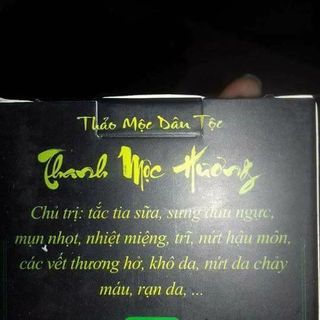 Thảo Mộc Dân Tộc
Thanh Mộc Hương
Chủ trị: tắc tia sữa, sưng đau ngực,
mụn nhọt, nhiệt miệng, trĩ, nứt hậu môn,
các vết thương hở, khô da, nứt da chảy
máu, rạn da, ...